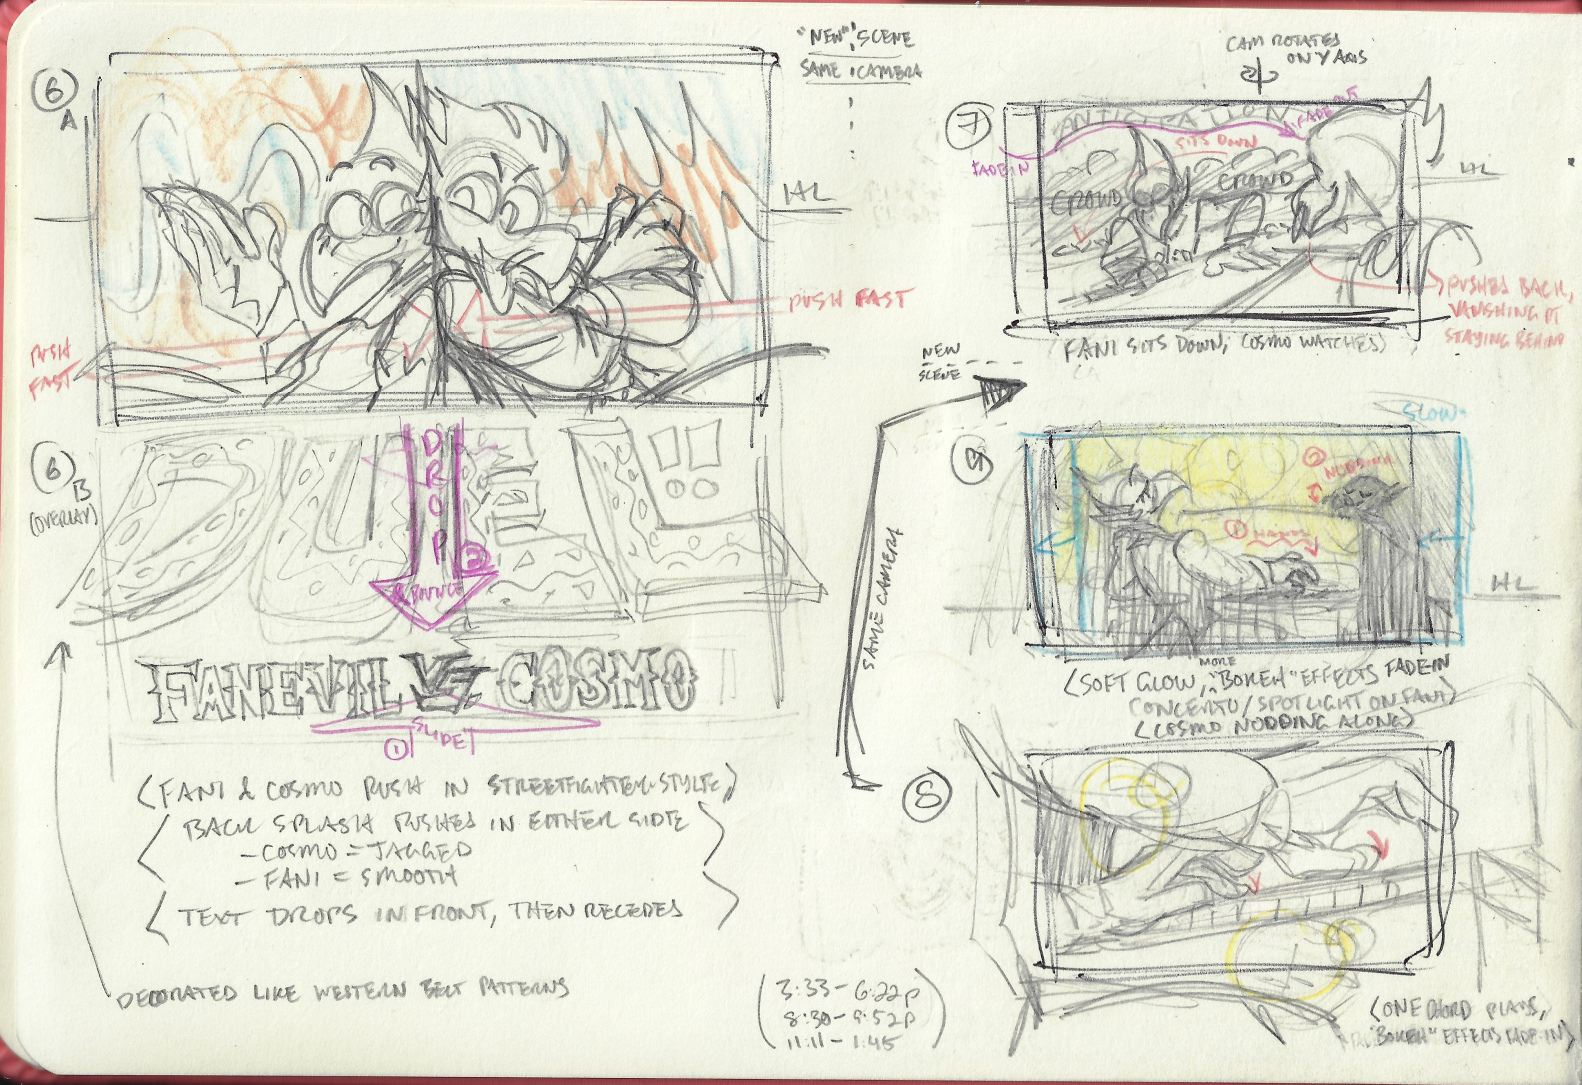 6
A
"NEW" SCENE
SAME CAMERA
HL
PUSH FAST
PUSH
FAST
6
B
(OVERLAY)
DUEL!!
DROP
2
& BOUNCE
FANEVIL VS COSMO
1 SLIDE
(FANI & COSMO PUSH IN STREETFIGHTER-STYLE)
(BACK SPLASH PUSHES IN EITHER SIDE
- COSMO = JAGGED
- FANI = SMOOTH)
(TEXT DROPS IN FRONT, THEN RECEDES)
DECORATED LIKE WESTERN BELT PATTERNS
(3:33 - 6:22P
8:30 - 9:52P
11:11 - 1:45)
CAM ROTATES
ON Y AXIS
7
ANTICIPATION
FADE OUT
FADE IN
SITS DOWN
CROWD
CROWD
HL
PUSHED BACK,
VANISHING PT
STAYING BEHIND
(FANI SITS DOWN, COSMO WATCHES)
NEW
SCENE
SAME CAMERA
SLOW
9
2 NODDING
1
HL
(SOFT GLOW, MORE "BOKEH" EFFECTS FADE-IN
CONCERTO/SPOTLIGHT ON FANI)
(COSMO NODDING ALONG)
8
(ONE CHORD PLAYS,
"BOKEH" EFFECTS FADE-IN)